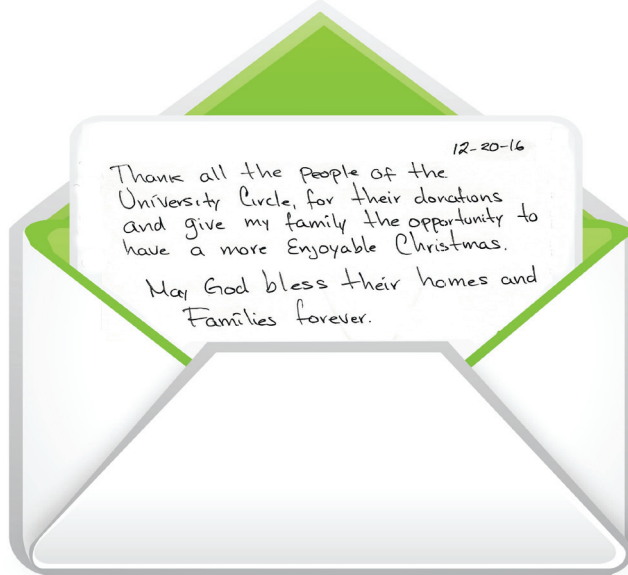 12-20-16
Thank all the people of the
University Circle, for their donations
and give my family the opportunity to
have a more Enjoyable Christmas.
May God bless their homes and
Families forever.